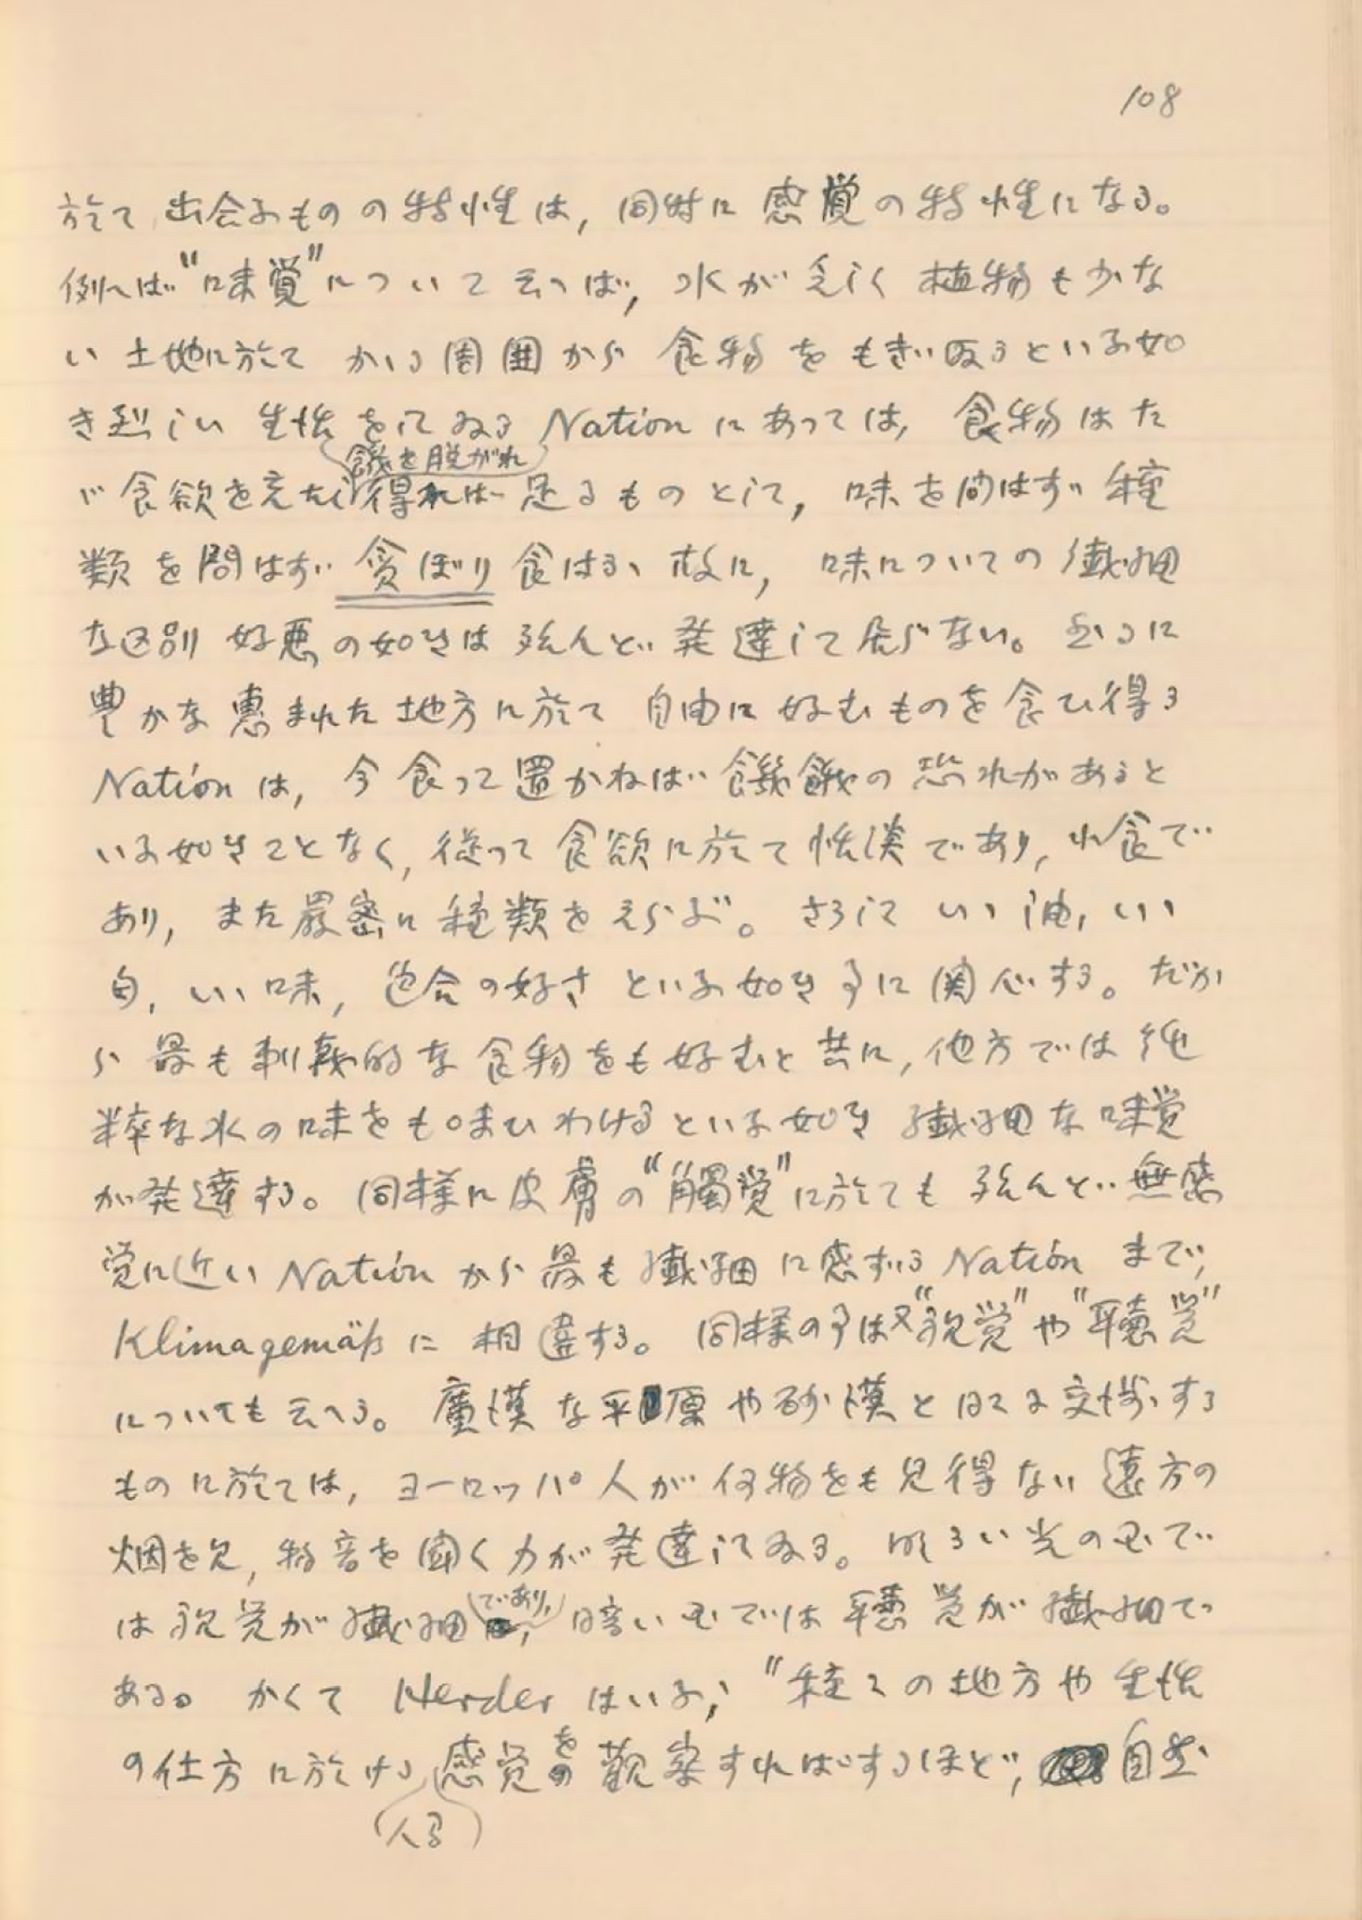 108
於て出会ふものの特性は,同時に感覚の特性になる。
例へば"味覚"について云へば,水が乏しく植物も少な
い土地に於てかゝる周囲から食物をもぎ取るといふ如
き烈しい生活をしてゐるNationにあっては,食物はた
餓を脱がれ
ゞ食欲を充たし得れば足るものとして,味を問はず種
類を問はず貪ぼり食はる、故に,味についての繊細
な区別好悪の如きは殆んど発達して居らない。然るに
豊かな恵まれた地方に於て自由に好むものを食ひ得る
Nationは,今食って置かねば饑餓の恐れがあると
いふ如きことなく,従って食欲に於て恬淡であり,小食で
あり,また厳密に種類をえらぶ。さうしていゝ油,いゝ
匂,いゝ味,色合の好さといふ如き事に関心する。だか
ら最も刺戟的な食物をも好むと共に,他方では純
粋な水の味をも味ひわけるといふ如き繊細な味覚
が発達する。同様に皮膚の"觸覚"に於ても殆んど無感
覚に近いNationから最も繊細に感ずるNationまで,
Klimagemäßに相違する。同様の事は又"視覚"や"聴覚"
についても云へる。廣漠な平原や砂漠と日々に交渉する
ものに於ては,ヨーロッパ人が何物をも見得ない遠方の
烟を見,物音を聞く力が発達してゐる。明るい光の国で
は視覚が繊細であり,暗い国では聴覚が繊細で
ある。かくてHerderはいふ,"種々の地方や生活
の仕方に於ける人間の感覚を観察すればするほど,自然